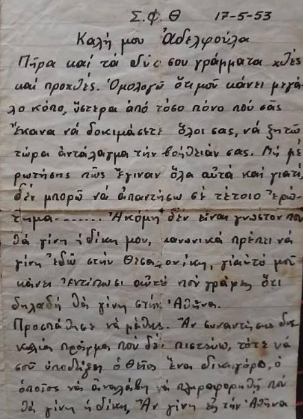 Σ.Φ.Θ 17-5-53
Καλή μου Ἀδελφούλα
Πῆρα καί τά δύο σου γράμματα χθές
καί προχθές. Ὁμολογῶ ὅτι μοῦ κάνει μεγά
λο κόπο, ὕστερα ἀπό τόσο πόνο πού σᾶς
ἔκανα νά δοκιμάσετε ὅλοι σας, νά ζητῶ
τώρα ἀντάλαγμα τήν βοήθειάν σας. Μή μέ
ρωτήσης πῶς ἔγιναν ὅλα αὐτά καί γιατί,
δέν μπορῶ νά ἀπαντήσω σέ τέτοιο ἐρώ
τημα....... Ἀκόμη δέν εἶναι γνωστόν ποῦ
θά γίνη ἡ δίκη μου, κανονικά πρέπει νά
γίνη ἐδῶ στήν Θεσσονίκη, γιαὐτό μοῦ
κάνει ἐντύπωσι αὐτό πού γράφεις ὅτι
δηλαδή θά γίνη στήν Ἀθήνα.
Προσπάθησε νά μάθης. Ἄν συναντήσεις
καμία πρᾶγμα πού δέν πιστεύω, τότε νά
σοῦ ὑποδείξη ὁ Θεῖος ἕνα δικηγόρο, ὁ
ὁποῖος νά ἀναλάβη νά πληροφορηθῆ ποῦ
θά γίνη ἡ δίκη, Ἄν γίνη εἰς τήν Ἀθήνα